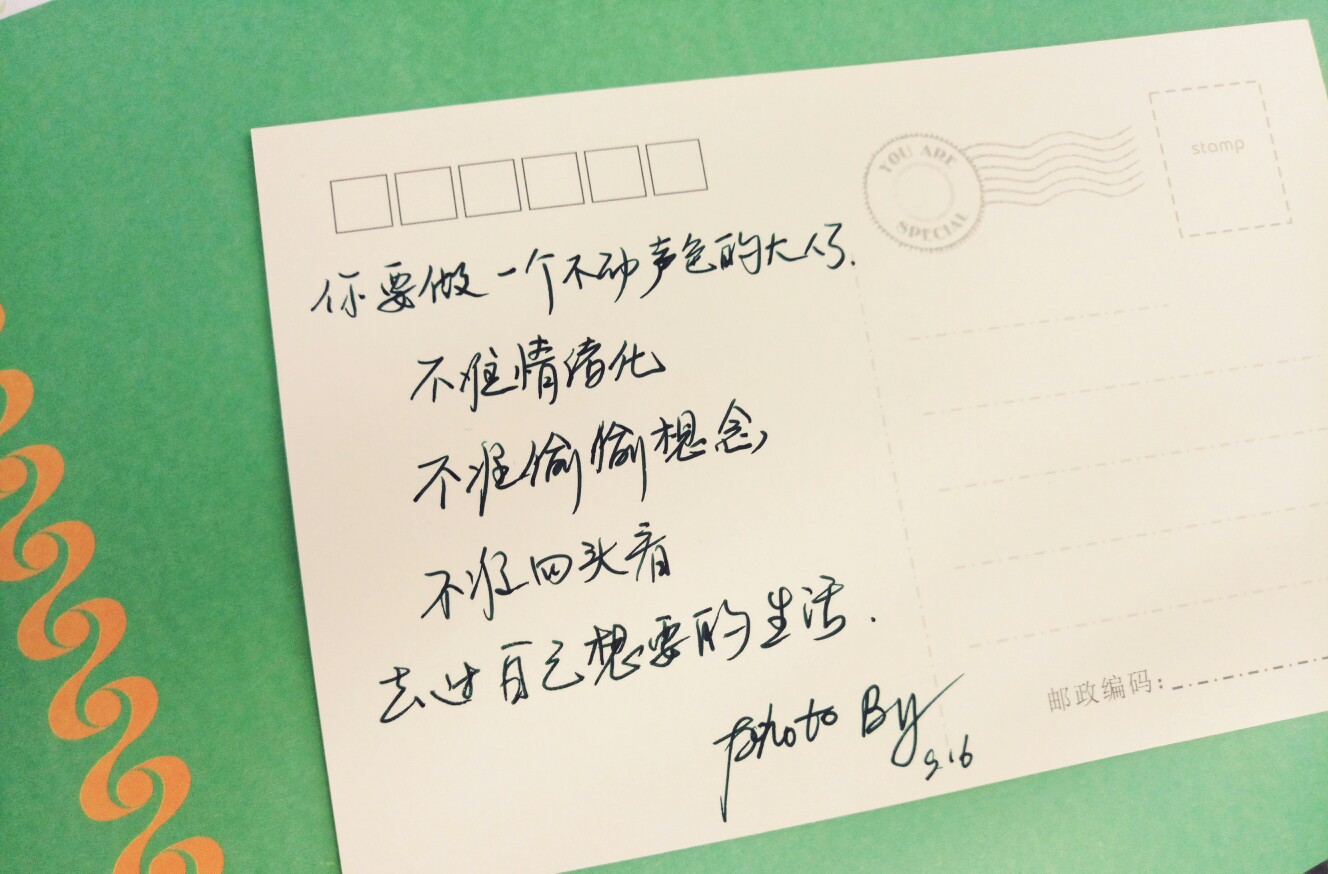 YOU ARE
SPECIAL
stamp
你要做一个不动声色的大人了.
不准情绪化
不准偷偷想念
不准回头看
去过自己想要的生活.
photo By
9.16
邮政编码: